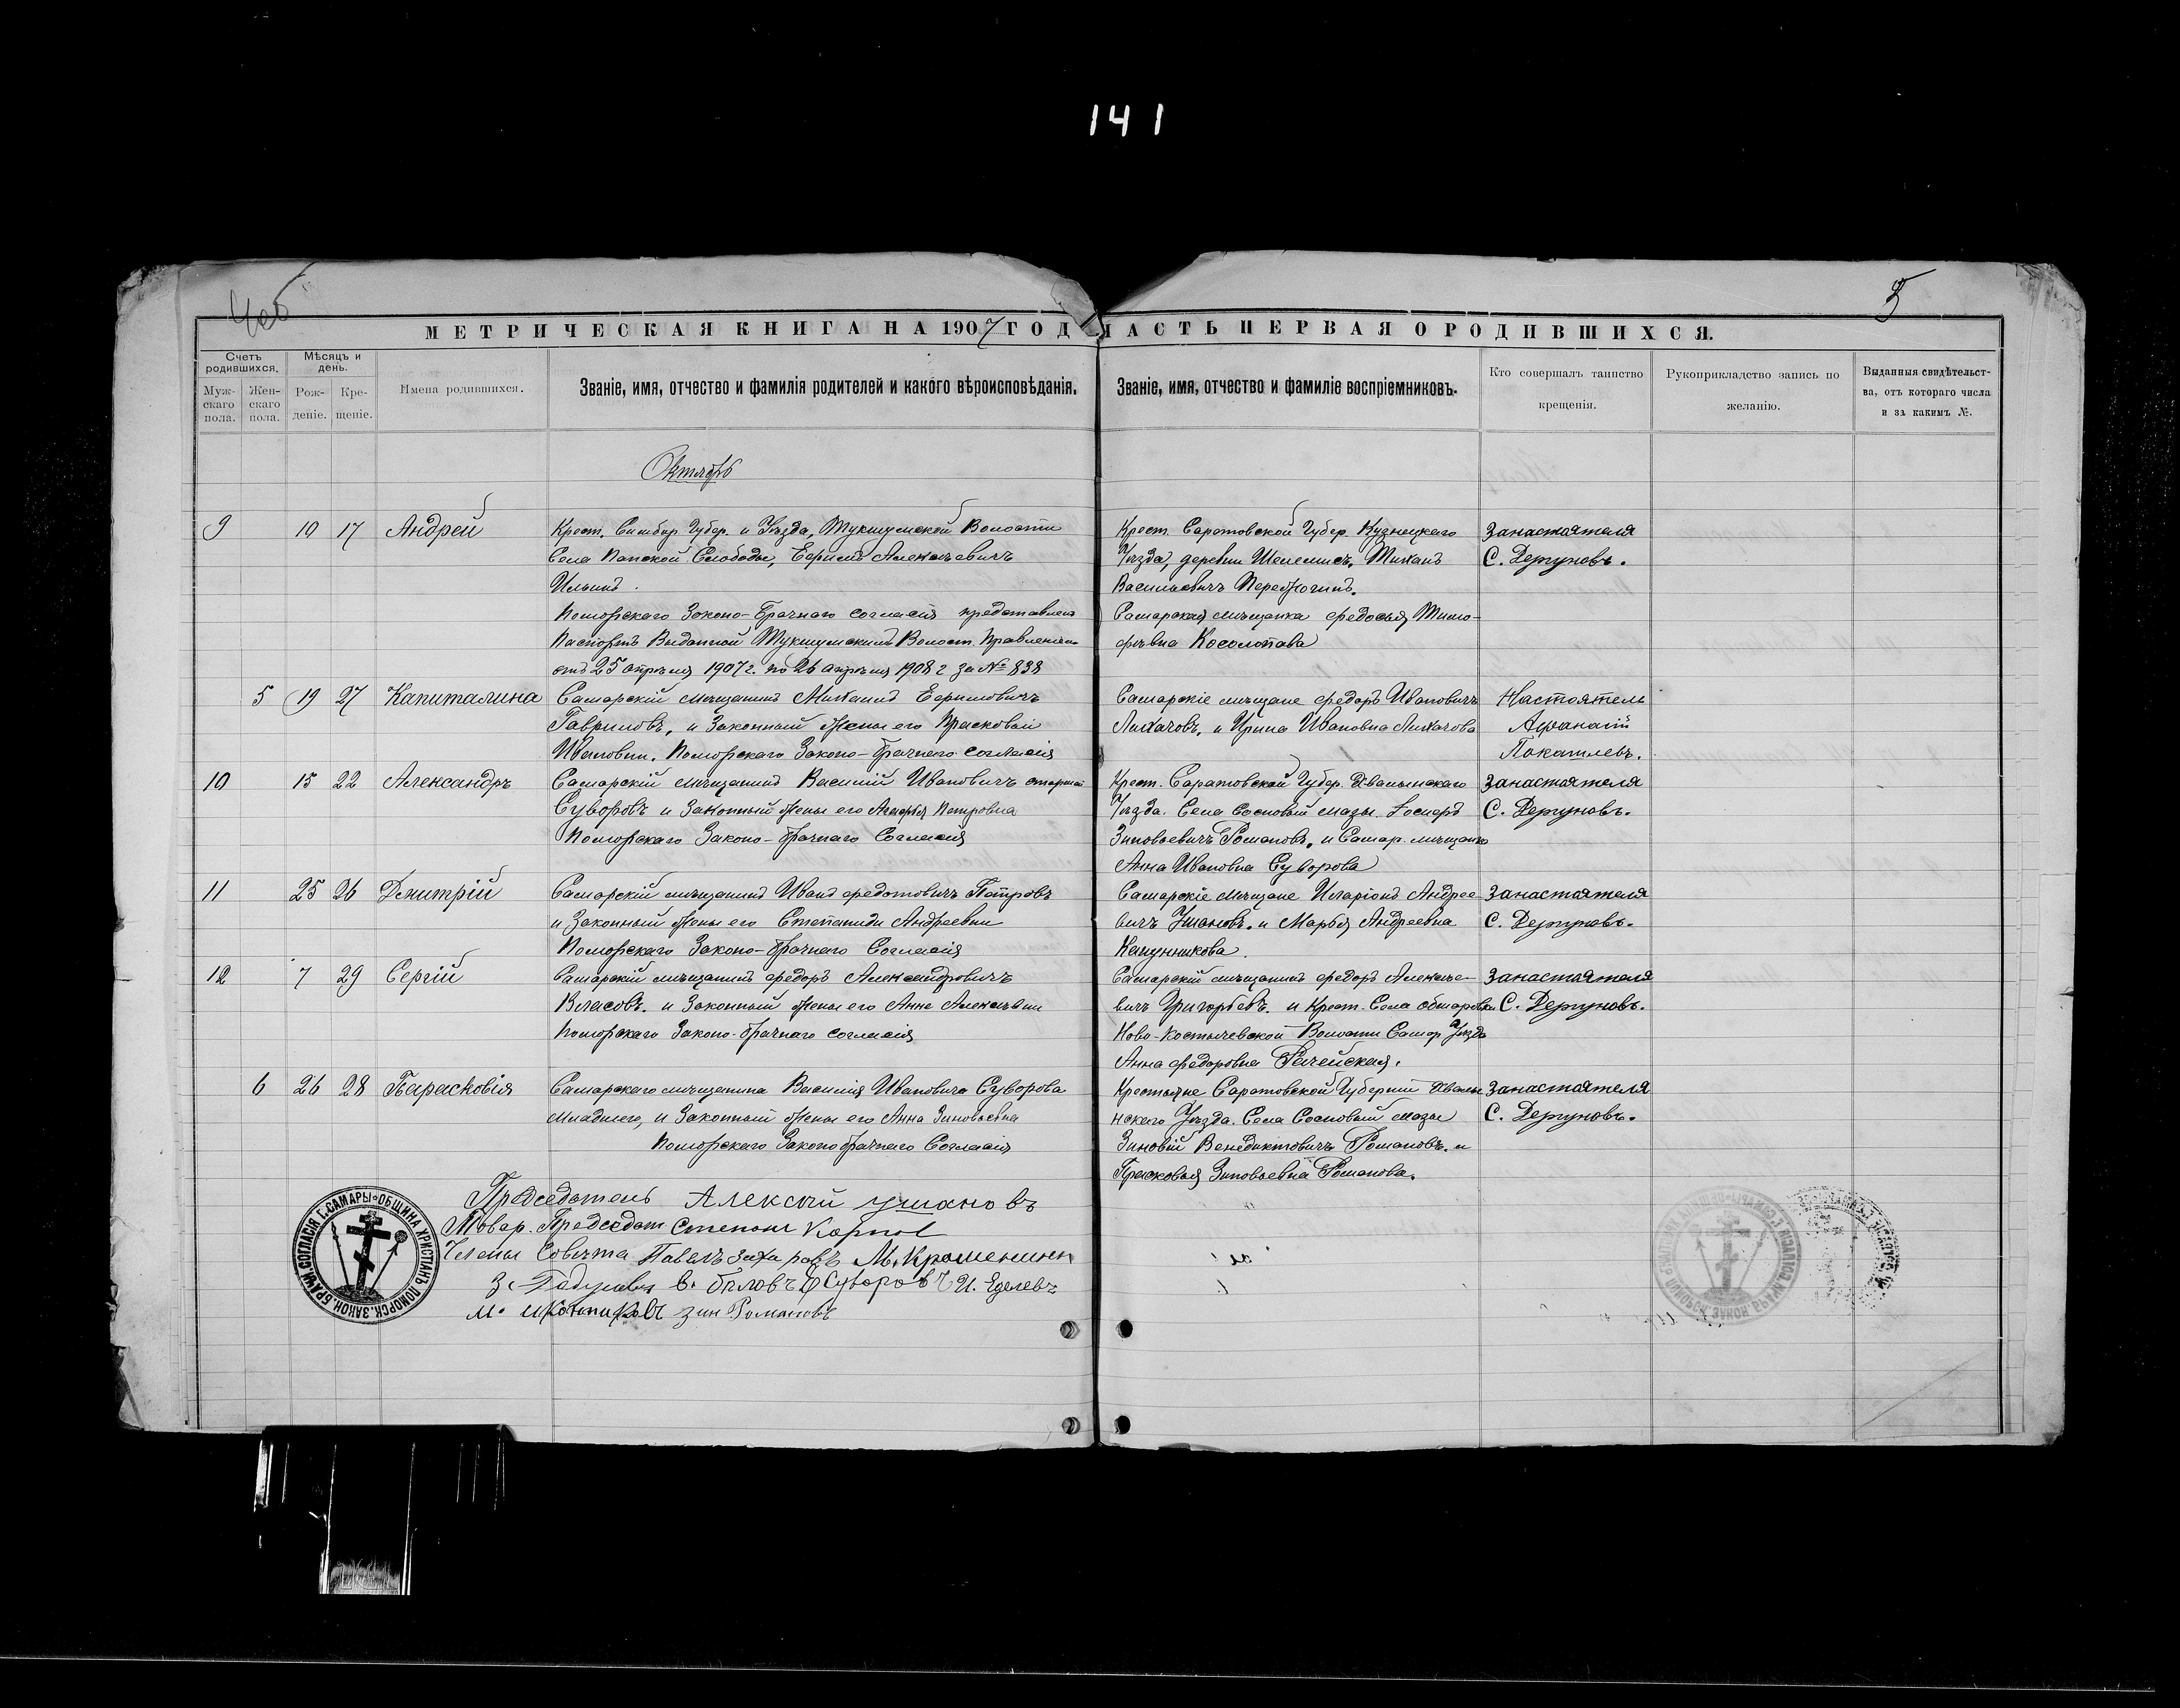 141
5
МЕТРИЧЕСКАЯ КНИГА НА 1907 ГОД ЧАСТЬ ПЕРВАЯ О РОДИВШИХСЯ.
Счетъ родившихся.
Мужскаго пола.
Женскаго пола.
Мѣсяцъ и день.
Рожденіе.
Крещеніе.
Имена родившихся.
Званіе, имя, отчество и фамилія родителей и какого вѣроисповѣданія.
Званіе, имя, отчество и фамиліе воспріемниковъ.
Кто совершалъ таинство крещенія.
Рукоприкладство запись по желанію.
Выданныя свидѣтельства, отъ котораго числа и за какимъ №.
Октябрь
9 10 17 Андрей
Крест. Симбир. Губер. и Уѣзда, Тукшумской Волости
Села Папской Слободы, Ефимъ Алексѣевичъ
Ильинъ.
Поморскаго Законо-Брачнаго согласія представлен
Паспортъ Выданной Тукшумскимъ Волост. Правленіем
отъ 25 апрѣля 1907 г. по 26 апрѣля 1908 г за № 838
Крест. Саратовской Губер. Кузнецкаго
Уѣзда, деревни Шелемисъ,
Васильевичъ
Самарская мѣщанка Федосья Тимо-
фѣвна Косолапова
Занастоятеля
С. Дергуновъ.
5 19 27 Капиталина
Самарскій мѣщанинъ Михаилъ Ефимовичъ
Гавриловъ, и Законный жены его Прасковьи
Ивановни. Поморскаго Законо-брачнаго согласія
Самарскіе мѣщане Федоръ Ивановичъ
Лихачовъ, и Ирина Ивановна Лихачова
Настоятель
Афанасій
Покатилевъ.
10 15 22 Александръ
Самарскій мѣщанинъ Василій Ивановичъ старшій
Суворовъ и Законный жены его Петровна
Поморскаго Законо-брачнаго Согласія
Крест. Саратовской Губер. Хвалынскаго
Уѣзда. Села Сосновый мазы.
Зиновьевичъ Романовъ, и Самар. мѣщанка
Анна Ивановна Суворова
Занастоятеля
С. Дергуновъ.
11 25 26 Дмитрій
Самарскій мѣщанинъ Иванъ Федотовичъ Петровъ
и Законный жены его Степанида Андреевни
Поморскаго Законо-брачнаго Согласія
Самарскіе мѣщане Иларіонъ Андрее-
вичъ Ушановъ. и Марья Андреевна
Калунникова.
Занастоятеля
С. Дергуновъ.
12 7 29 Сергій
Самарскій мѣщанинъ Федоръ Александровичъ
Власовъ. и Законный жены его Анна Алексѣвни
Поморскаго Законо-брачнаго согласія
Самарскій мѣщанинъ Федоръ Алексѣе-
вичъ Григорьевъ. и Крест. Села Обшаровки
Ново-Костычевской Волости Самар. Уѣзда
Анна Федоровна Рачейская.
Занастоятеля
С. Дергуновъ.
6 26 28 Парасковія
Самарскаго мѣщанина Василія Ивановича Суворова
младшего, и Законный жены его Анна Зиновьевна
Поморскаго Законобрачнаго Согласія
Крестьяне Саратовской Губерніи Хвалы
нскаго Уѣзда. Села Сосновый мазы
Зиновій Венедиктовичъ Романовъ. и
Прасковья Зиновьевна Романова.
Занастоятеля
С. Дергуновъ.
Предсѣдатель Алексѣй Ушановъ
Товар. Предсѣдат Степанъ Карпов
Члены Совѣта Павелъ Захаровъ М. Крашенинн
В. Бѣловъ Ф Суворовъ И. Еделевъ
М. Иконниковъ Зин Романовъ
ОБЩИНА ХРИСТІАНЪ ПОМОРСК. ЗАКОН. БРАЧН. СОГЛАСІЯ Г. САМАРЫ